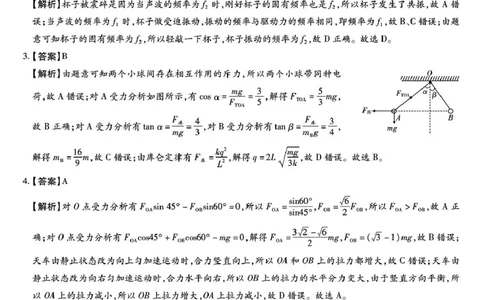 【解析】杯子被震碎是因为当声波的频率为f₂时,刚好杯子的固有频率也是f₂,所以杯子发生了共振,故A错
误;当声波的频率为f₁时,杯子做受迫振动,振动的频率与驱动力的频率相同,即频率为f₁,故B、C错误;由题
意可知杯子的固有频率为f₂,所以轻敲一下杯子,杯子振动的频率为f₂,故D正确。故选D。
3.【答案】B
【解析】由题意可知两个小球间存在相互作用的斥力,所以两个小球带同种电
荷,故A错误;对A受力分析如图所示,有cos α=mg/F_TOA=3/5,解得F_TOA=5/3mg,
故B正确;对A受力分析有tan α=F库/mg=4/3,对B受力分析有tan β=F库/m_Bg=3/4,
解得m_B=16/9m,故C错误;由库仑定律有F库=kq²/L²,解得q=2L√(mg/3k),故D错误。故选B。
O
α
β
F_TOA
F库
A
B
mg
4.【答案】A
【解析】对O点受力分析有F_OA sin 45°-F_OB sin60°=0,所以F_OA=sin60°/sin45°,F_OB=√6/2F_OB,所以F_OA>F_OB,故A正
确;对O点受力分析有F_OA cos45°+F_OB cos60°-mg=0,解得F_OA=3√2-√6/2mg,F_OB=(√3-1)mg,故B错误;
天车由静止状态改为向上匀加速运动时,合力竖直向上,所以OA和OB上的拉力都增大,故C错误;天车由
静止状态改为向右匀加速运动时,合力水平向右,所以OB上的拉力的水平分力变大,由于竖直方向平衡,所
以OA上的拉力减小,所以OB上拉力增大,OA上拉力减小,故D错误。故选A。